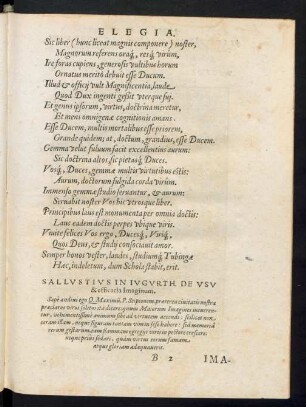 ELEGIA.
Sic liber (hunc liceat magnis componere) noster,
Magnorum referens oraq́, resq́ virûm,
Ire foras cupiens, generosis vultibus horum
Ornatus meritò debuit esse Ducum.
Illud & officij vult Magnificentia, laude
Quod Dux ingenti gessit uterque sui.
Et genus ipsorum, virtus, doctrina meretur,
Et mens omnigenæ cognitionis amans.
Esse Ducem, multis mortalibus esse priorem,
Grande quidem: at, doctum, grandius, esse Ducem.
Gemma velut fuluum facit excellentius aurum:
Sic doctrina altos, sic pietasq́ Duces.
Vosq́, Duces, gemmæ multis virtutibus estis:
Aurum, doctorum fulgida corda virûm.
Immensa gemmæ studio seruantur, & aurum:
Seruabit noster Vos hic utroque liber.
Principibus laus est monumenta per omnia doctis:
Laus eadem doctis perpes ubique viris.
Viuite felices Vos ergo, Ducesq́, Viriq́,
Quos Deus, & studij consociauit amor.
Semper honos vester, laudes, studiumq́ Tubingæ
Hac, indeletum, dum Schola stabit, erit.
SALLVSTIVS IN IVGVRTH. DE VSV
& efficacia Imaginum.
Sæpè audiui ego Q. Maximũ, P. Scipionem, præterea ciuitatis nostræ
præclaros viros solitos ita dicere: quum Maiorum Imagines intuerentur,
vehementissimè animum sibi ad virtutem accendi: scilicet non
ceram illam, neque figuram tantam vim in sese habere: sed memoria
rerum gestarum eam flammam egregijs viris in pectore crescere:
neque prius sedari, quàm virtus eorum famam
atque gloriam adæquauerit.
B 2
IMA-